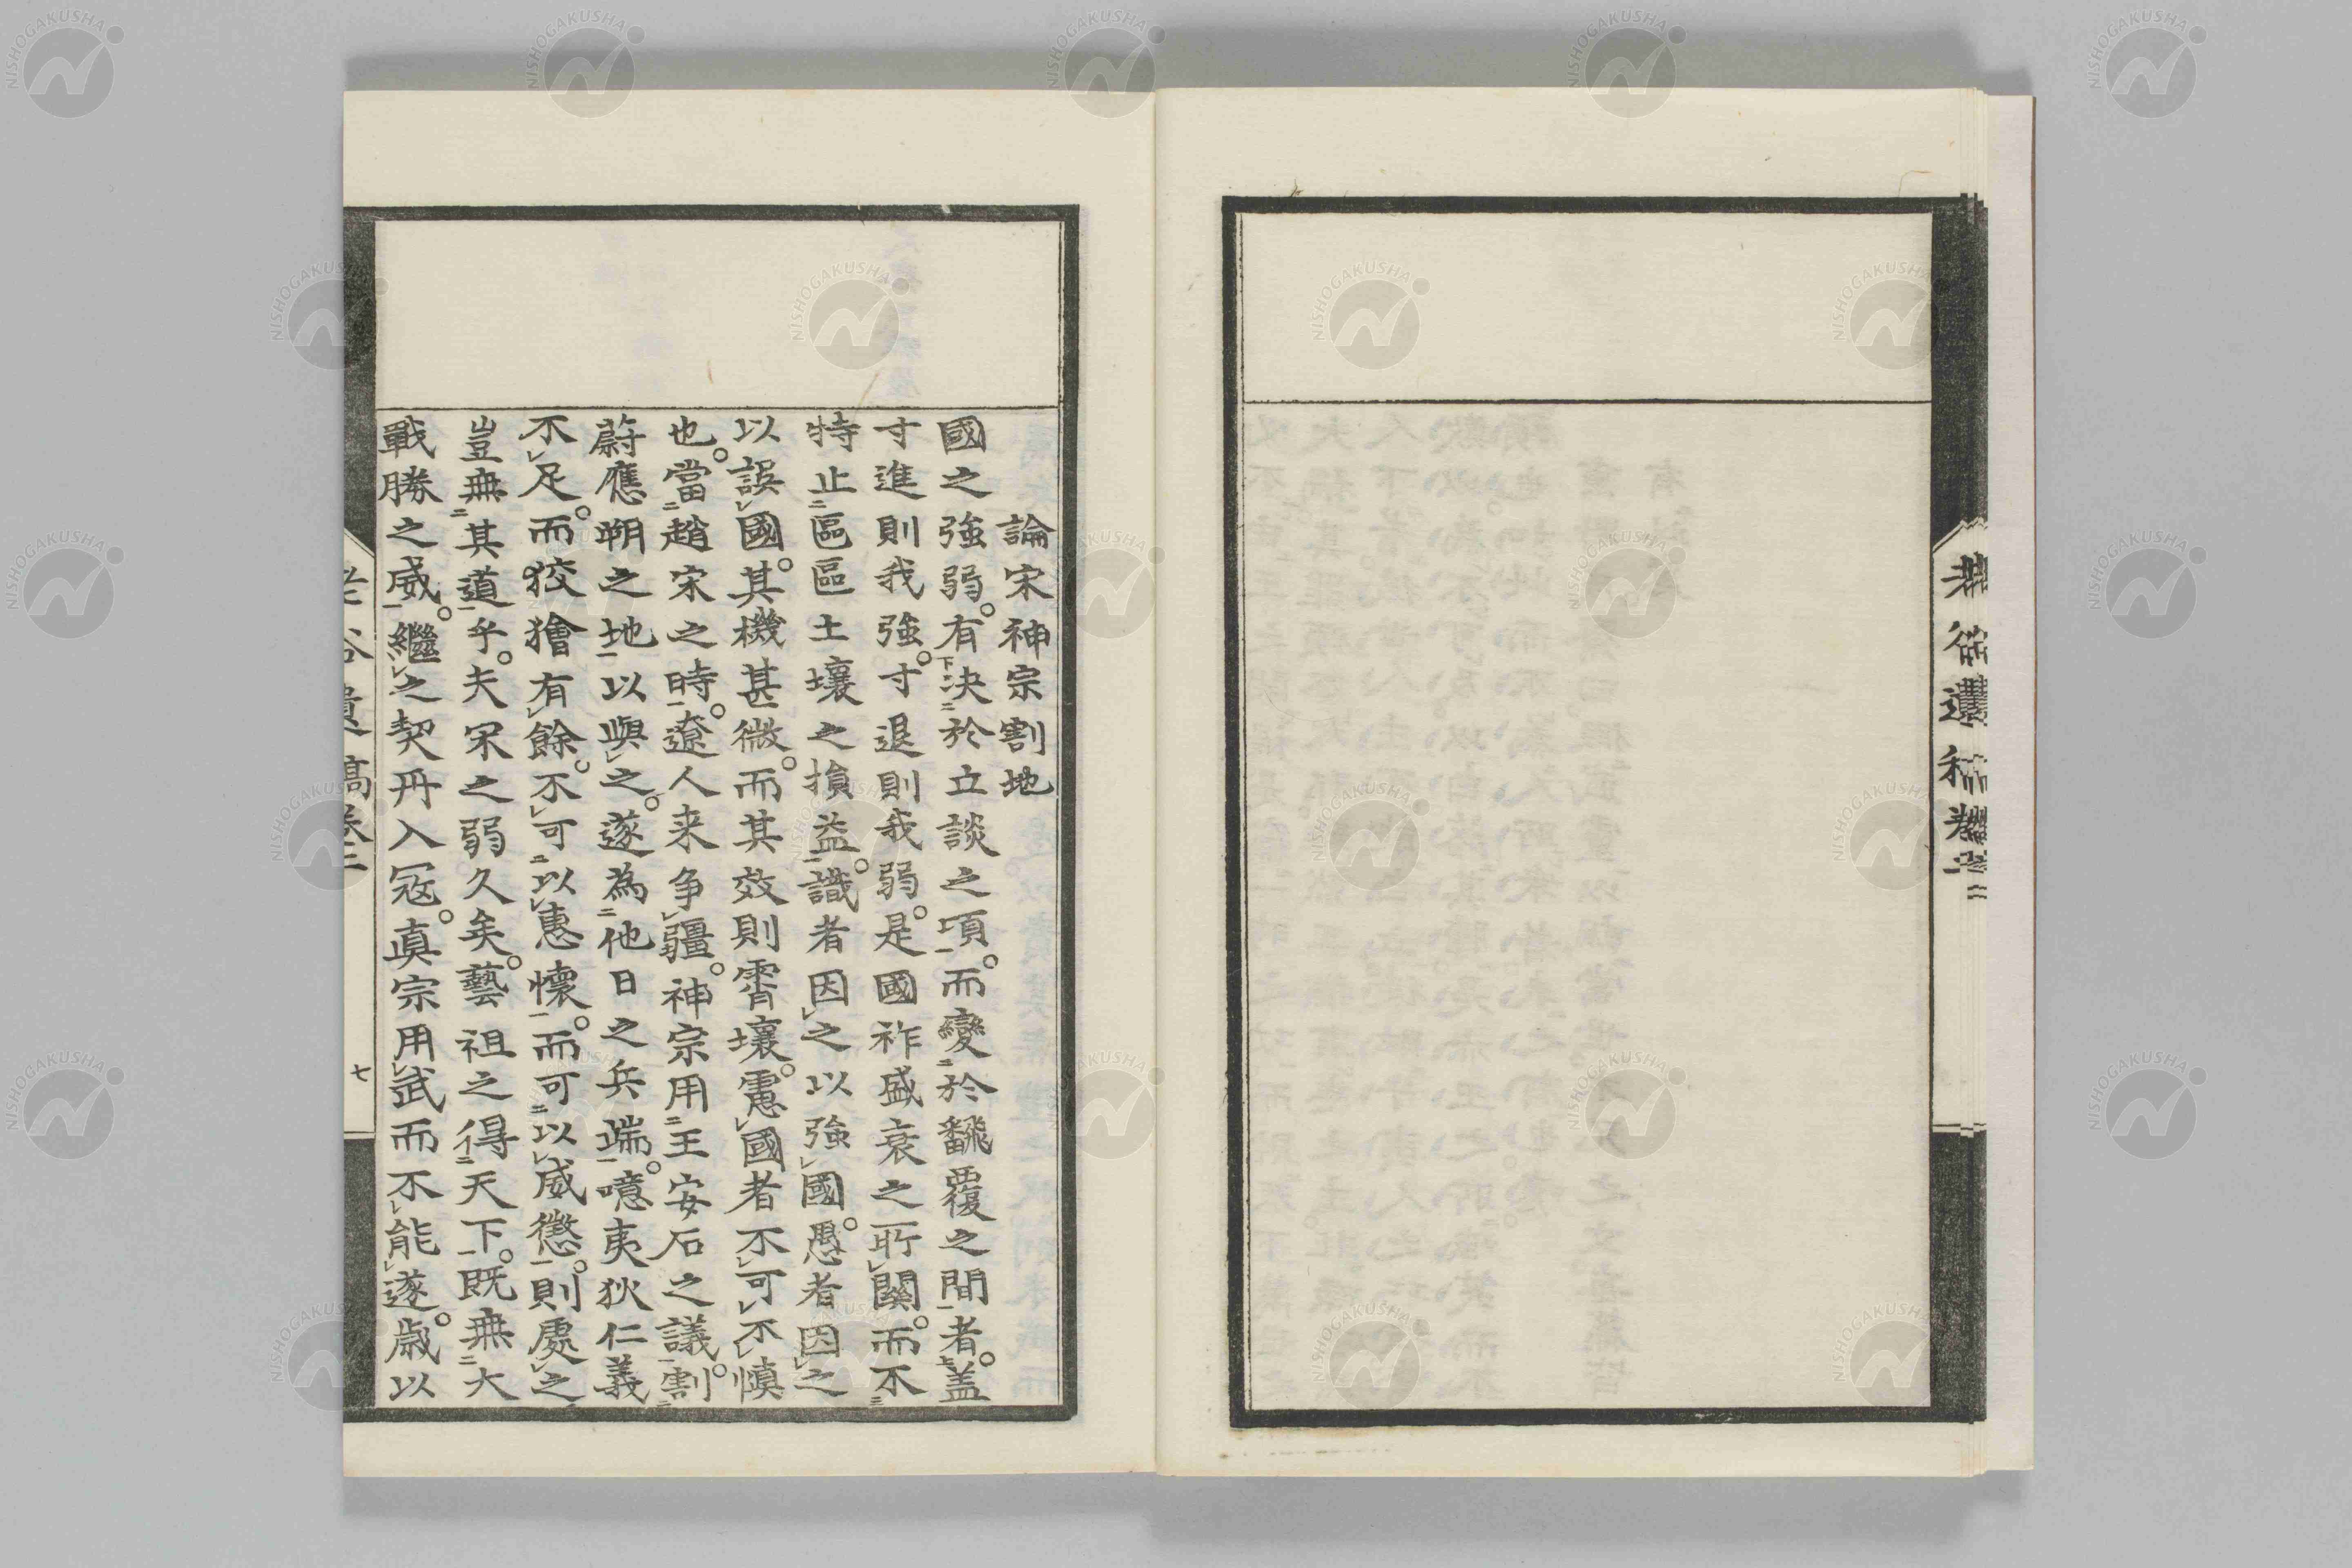 論宋神宗割地
國之強弱。有下決二於立談之項一。而變二於飜覆之間一者上。盖
寸進則我強。寸退則我弱。是國祚盛衰之所レ關。而不三
特止二區區土壤之損益一。識者因レ之以強レ國。愚者因レ之
以誤レ國。其機甚微。而其效則霄壤。慮レ國者不レ可レ不レ慎
也。當二趙宋之時一。遼人来争レ疆。神宗用二王安石之議一。割二
蔚應朔之地一以與レ之。遂為二他日之兵端一。噫夷狄仁義
不レ足。而狡獪有レ餘。不レ可二以レ惠懷一。而可二以レ威懲一。則處レ之
豈無二其道一乎。夫宋之弱久矣。藝祖之得二天下一。既無二大
戰勝之威一。繼レ之契丹入冦。真宗用レ武而不レ能レ遂。歳以
遺稿卷二
七
NISHOGAKUSHA